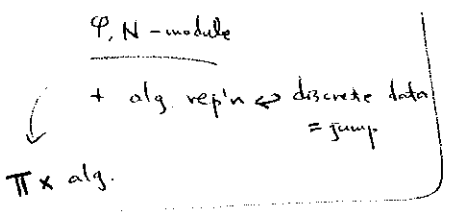 φ, N-module
+ alg. rep'n ↔ discrete data
= jump
π × alg.